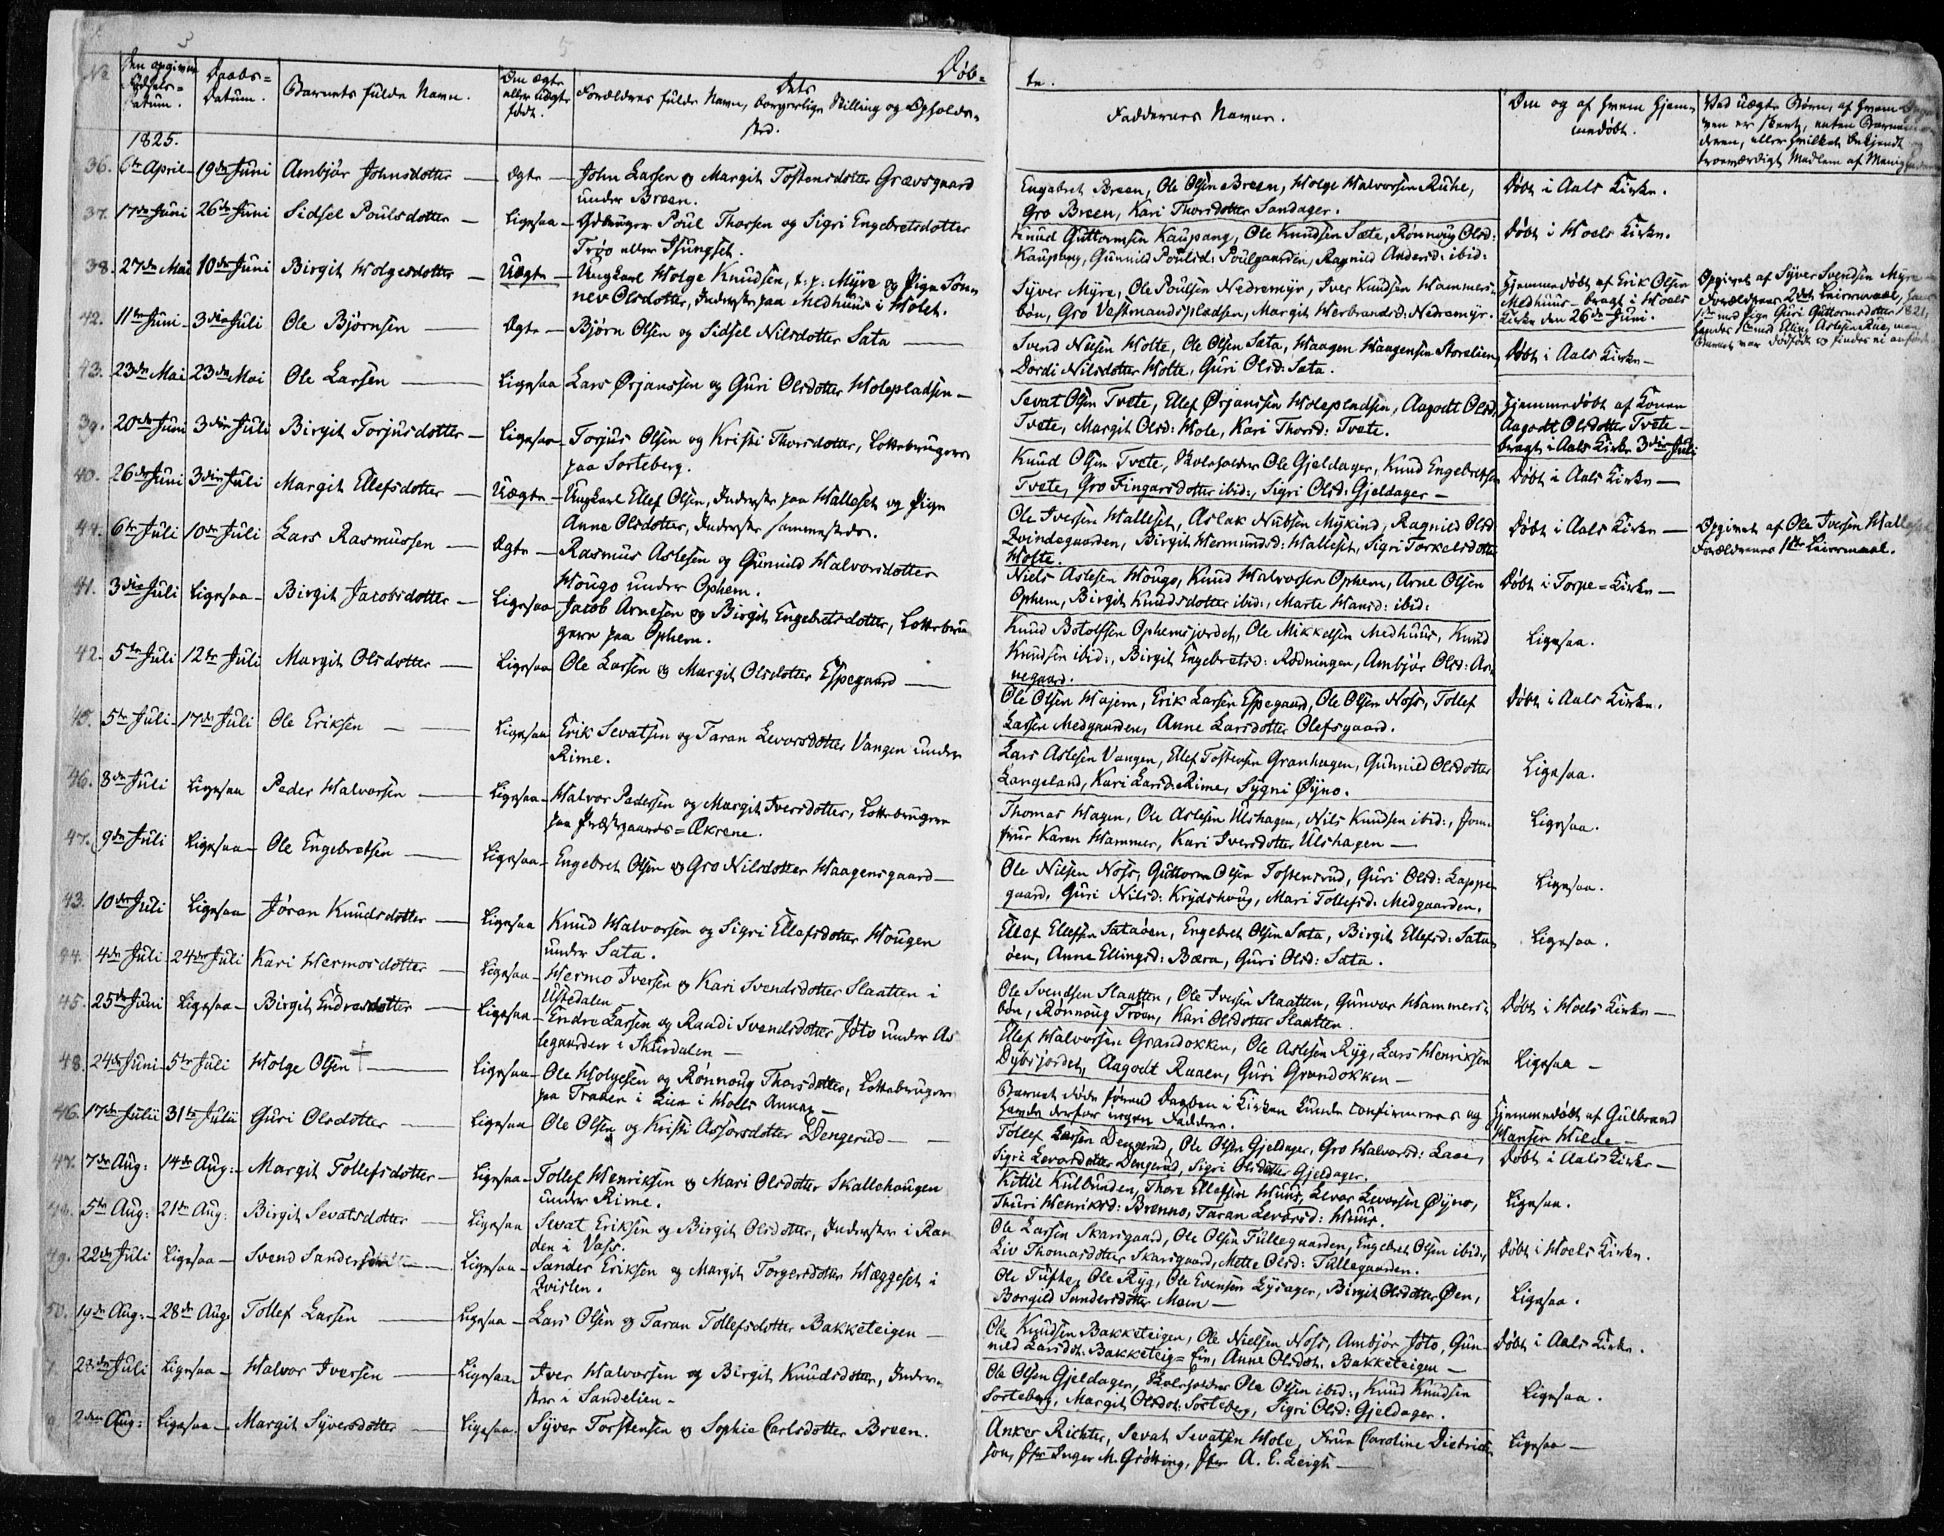 Døbte.
No
Den opgivne Fødsels= Datum.
Daabs= Datum.
Barnets fulde Navn.
Om ægte eller uægte født.
Dets Forældres fulde Navn, borgerlige Stilling og Opholds= sted.
Faddernes Navne.
Om og af hvem hjemmedøbt.
Ved uægte Børn, af hvem
ven er skeet, enten Barne
deren, eller hvilket bekjendt og
troeværdigt Medlem af Menigheden
1825.
36. 6te April 19de Juni Ambjør Johnsdotter Ægte John Larsen og Margit Tostensdotter Grævsgaard
under Breen.
Engebret Breen, Ole Olsen Breen, Holge Halvorsen Ruhe,
Gro Breen, Kari Thorsdotter Sandager.
Døbt i Aals Kirke.
37. 17de Juni 26de Juni Sidsel Poulsdotter Ligesaa Gdbruger Poul Thorsen og Sigri Engebretsdotter
Trøo eller
Knud Guttormsen Kaupang, Ole Knudsen Sæte, Rønnoug Olsd:
Kaupang, Gunnild Poulsd: Poulgaarden, Ragnild Andersd: ibid:
Døbt i Hoels Kirke.
38. 27de Mai 10de Juni Birgit Holgesdotter Uægte Ungkarl Holge Knudsen, Myre og Pige Søn
nev Olsdotter, Inderste paa Medhuus i Holet.
Syver Myre, Ole Poulsen Nedremyr, Iver Knudsen Hammers-
bøn, Gro Vestmandspladsen, Margit Herbrandsd: Nedremyr.
Hjemmedøbt af Erik Olsen
Medhuus – bragt i Hoels
Kirke den 26de Juni.
Opgivet af Syver Svendsen Myre
Forældrenes 2det Leiermaal, hans
1ste med Pige Guri Guttormsdotter 1821,
hendes 1ste med Elling Aslesen Rue, men
Barnet var dødfødt og findes ei anført
42. 11te Juni 3die Juli Ole Bjørnsen Ægte Bjørn Olsen og Sidsel Nilsdotter Sata
Svend Nilsen Holte, Ole Olsen Sata, Haagen Haagensen Storelien
Dordi Nilsdotter Holte, Guri Olsd: Sata.
Døbt i Aals Kirke
43. 23de Mai 23de Mai Ole Larsen Ligesaa Lars Ørjanssen og Guri Olsdotter Holepladsen
Sevat Olsen Tvete, Ellef Ørjanssen Holepladsen, Aagodt Olsd:
Tvete, Margit Olsd: Hole, Kari Thorsd: Tvete.
Hjemmedøbt af Konen
Aagodt Olsdotter Tvete
bragt i Aals Kirke 3die Juli
39. 20de Juni 3die Juli Birgit Torjusdotter Ligesaa Torjus Olsen og Kristi Thorsdotter, Lottebrugere
paa Sorteberg.
Knud Olsen Tvete, Skoleholder Ole Gjeldager, Knud Engebretsen
Tvete, Gro Fingarsdotter ibid:, Sigri Olsd: Gjeldager
Døbt i Aals Kirke
40. 26de Juni 3die Juli Margit Ellefsdotter Uægte Ungkarl Ellef Olsen, Inderste paa Halleset og Pige
Anne Olsdotter, Inderste sammesteds.
Ole Iversen Halleset, Aslak Nubsen Mykind, Ragnild Olsd
Qvindegaarden, Birgit Hermundsd: Halleset, Sigri Torkelsdotter
Holte.
Døbt i Aals Kirke
Opgivet af Ole Iversen Halleset
Forældrenes 1ste Leiermaal.
44. 6te Juli 10de Juli Lars Rasmussen Ægte Rasmus Aslesen og Gunnild Halvorsdotter
Hougo under Ophem.
Niels Aslesen Hougo, Knud Halvorsen Ophem, Arne Olsen
Ophem, Birgit Knudsdotter ibid:, Marte Hansd: ibid:
Døbt i Torpe=Kirke
41. 3die Juli Ligesaa Birgit Jacobsdotter Ligesaa Jacob Arnesen og Birgit Engebretsdotter, Lottebru
gere paa Ophem.
Knud Botolfsen Ophemsjordet, Ole Mikkelsen Medhuus, Knud
Knudsen ibid:, Birgit Engebretsd: Rodningen, Ambjør Olsd: Ar-
negaard.
Ligesaa.
42. 5te Juli 12te Juli Margit Olsdotter Ligesaa Ole Larsen og Margit Olsdotter Espegaard
Ole Olsen Hajem, Erik Larsen Espegaard, Ole Olsen Noss, Tollef
Larsen Medgaarden, Anne Larsdotter Olefsgaard.
Døbt i Aals Kirke.
45. 5te Juli 17de Juli Ole Eriksen Ligesaa Erik Sevatsen og Taran Levorsdotter Vangen under
Rime.
Lars Aslesen Vangen, Ellef Tostensen Granhagen, Gunnild Olsdotter
Langeland, Kari Larsd: Rime, Sygni Øyno.
Ligesaa.
46. 8de Juli Ligesaa Peder Halvorsen Ligesaa Halvor Pedersen og Margit Iversdotter, Lottebrugere
paa Præstegaards=Ækrene.
Thomas Hagen, Ole Aslesen Ulshagen, Nils Knudsen ibid:, Jom-
frue Karen Hammer, Kari Iversdotter Ulshagen
Ligesaa.
47. 9de Juli Ligesaa Ole Engebretsen Ligesaa Engebret Olsen og Gro Nilsdotter Haagensgaard
Ole Nilsen Noss, Guttorm Olsen Tostensrud, Guri Olsd: Lappe-
gaard, Guri Nilsd: Krydshoug, Mari Tollefsd: Medgaarden.
Ligesaa.
43. 10de Juli Ligesaa Jøran Knudsdotter Ligesaa Knud Halvorsen og Sigri Ellefsdotter Hougen
under Sata.
Ellef Ellefsen Sataøen, Engebret Olsen Sata, Birgit Ellefsd: Sata-
øen, Anne Ellingsd: Bæra, Guri Olsd: Sata.
Ligesaa.
44. 4de Juli 24de Juli Kari Hermosdotter Ligesaa Hermo Iversen og Kari Svendsdotter Slaatten i
Ustedalen
Ole Svendsen Slaatten, Ole Iversen Slaatten, Gunvor Hammers-
bøn, Rønnoug Trøen, Kari Olsdotter Slaatten.
Døbt i Hoels Kirke
45. 25de Juni Ligesaa Birgit Endresdotter Ligesaa Endre Larsen og Randi Svendsdotter Jøto under As
legaarden i Skurdalen
Ellef Halvorsen Grandokken, Ole Aslesen Ryg, Lars Henriksen
Dybsjordet, Aagodt Raaen, Guri Grandokken
Ligesaa
48. 24de Juni 5te Juli Holge Olsen + Ligesaa Ole Holgesen og Rønnoug Thorsdotter, Lottebrugere
paa Traaen i Lien i Hoels Annex
Barnet døde førend Daaben i Kirken kunde confirmeres og
havde derfor ingen Faddere.
Hjemmedøbt af Gulbrand
Hansen Wilde
46. 17de Julii 31te Julii Guri Olsdotter Ligesaa Ole Olsen og Kristi Assorsdotter Dengerud
Tollef Larsen Dengerud, Ole Olsen Gjeldager, Gro Halvorsd: Laae,
Sigri Levorsdotter Dengerud, Sigri Olsdotter Gjeldager.
Døbt i Aals Kirke
47. 7de Aug: 14de Aug: Margit Tollefsdotter Ligesaa Tollef Henriksen og Mari Olsdotter Skallehaugen
under Rime.
Kittil Kulbunden, Thore Ellefsen Huus, Levor Levorsen Øyno,
Thuri Henriksd: Brenno, Taran Levorsd: Huus.
Ligesaa.
48. 5te Aug: 21de Aug: Birgit Sevatsdotter Ligesaa Sevat Eriksen og Birgit Olsdotter, Inderster i Ran
den i Vass.
Ole Larsen Skarsgaard, Ole Olsen Tullegaarden, Engebret Olsen ibid:,
Liv Thomasdotter Skarsgaard, Mette Olsd: Tullegaarden.
Døbt i Hoels Kirke.
49. 22de Juli Ligesaa Svend Sandersen Ligesaa Sander Eriksen og Margit Torgersdotter Hæggeset i
Qvislen.
Ole Tufte, Ole Ryg, Ole Evensen Lysager, Birgit Olsdotter Øen,
Borgild Sandersdotter Moen
Ligesaa.
50. 19de Aug: 28de Aug: Tollef Larsen Ligesaa Lars Olsen og Taran Tollefsdotter Bakketeigen
Ole Knudsen Bakketeigen, Ole Nielsen Noss, Ambjør Jóto, Gun-
nild Larsdot. Bakketeig=Eie, Anne Olsdot. Bakketeigen
Døbt i Aals Kirke.
28de Juli Ligesaa Halvor Iversen Ligesaa Iver Halvorsen og Birgit Knudsdotter, Inder-
ster i Sandelien
Ole Olsen Gjeldager, Skoleholder Ole Olsen ibid:, Knud Knudsen
Sorteberg, Margit Olsdot: Sorteberg, Sigri Olsd: Gjeldager.
Ligesaa.
2den Aug: Ligesaa Margit Syversdotter Ligesaa Syver Torstensen og Sophie Carlsdotter Breen.
Anker Richter, Sevat Sevatsen Hole, Frue Caroline Dietrich-
son, Jfr Inger M. Grötting, Jfr A. E. Leigh
Ligesaa